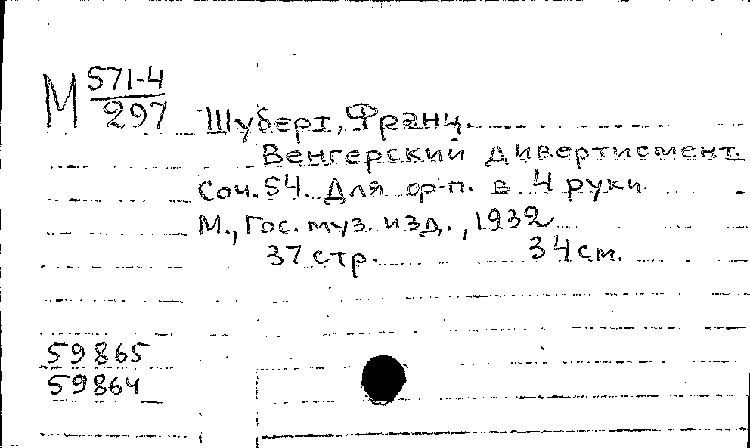 М 571-4
297
Шуберт, Франц.
Венгерский дивертисмент.
Соч. 54. Для ф-п. в 4 руки
М., Гос. муз. изд., 1932
37 стр. 34 см.
59865
59864